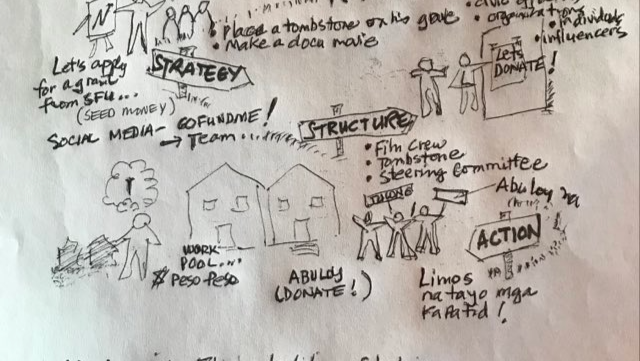 • place a tombstone on his grave
• make a docu movie
• organizations
• individuals
• influencers
Let's apply
for a grant
from SFU...
(SEED MONEY)
STRATEGY
Let's
DONATE!
SOCIAL MEDIA - GOFUNDME!
→ Team
STRUCTURE
• Film Crew
• Tombstone
• Steering Committee
Abuloy na
T
WORK
POOL....
$ Peso Peso
ABULOY
(DONATE!)
ACTION
Limos
na tayo mga
Kapatid!